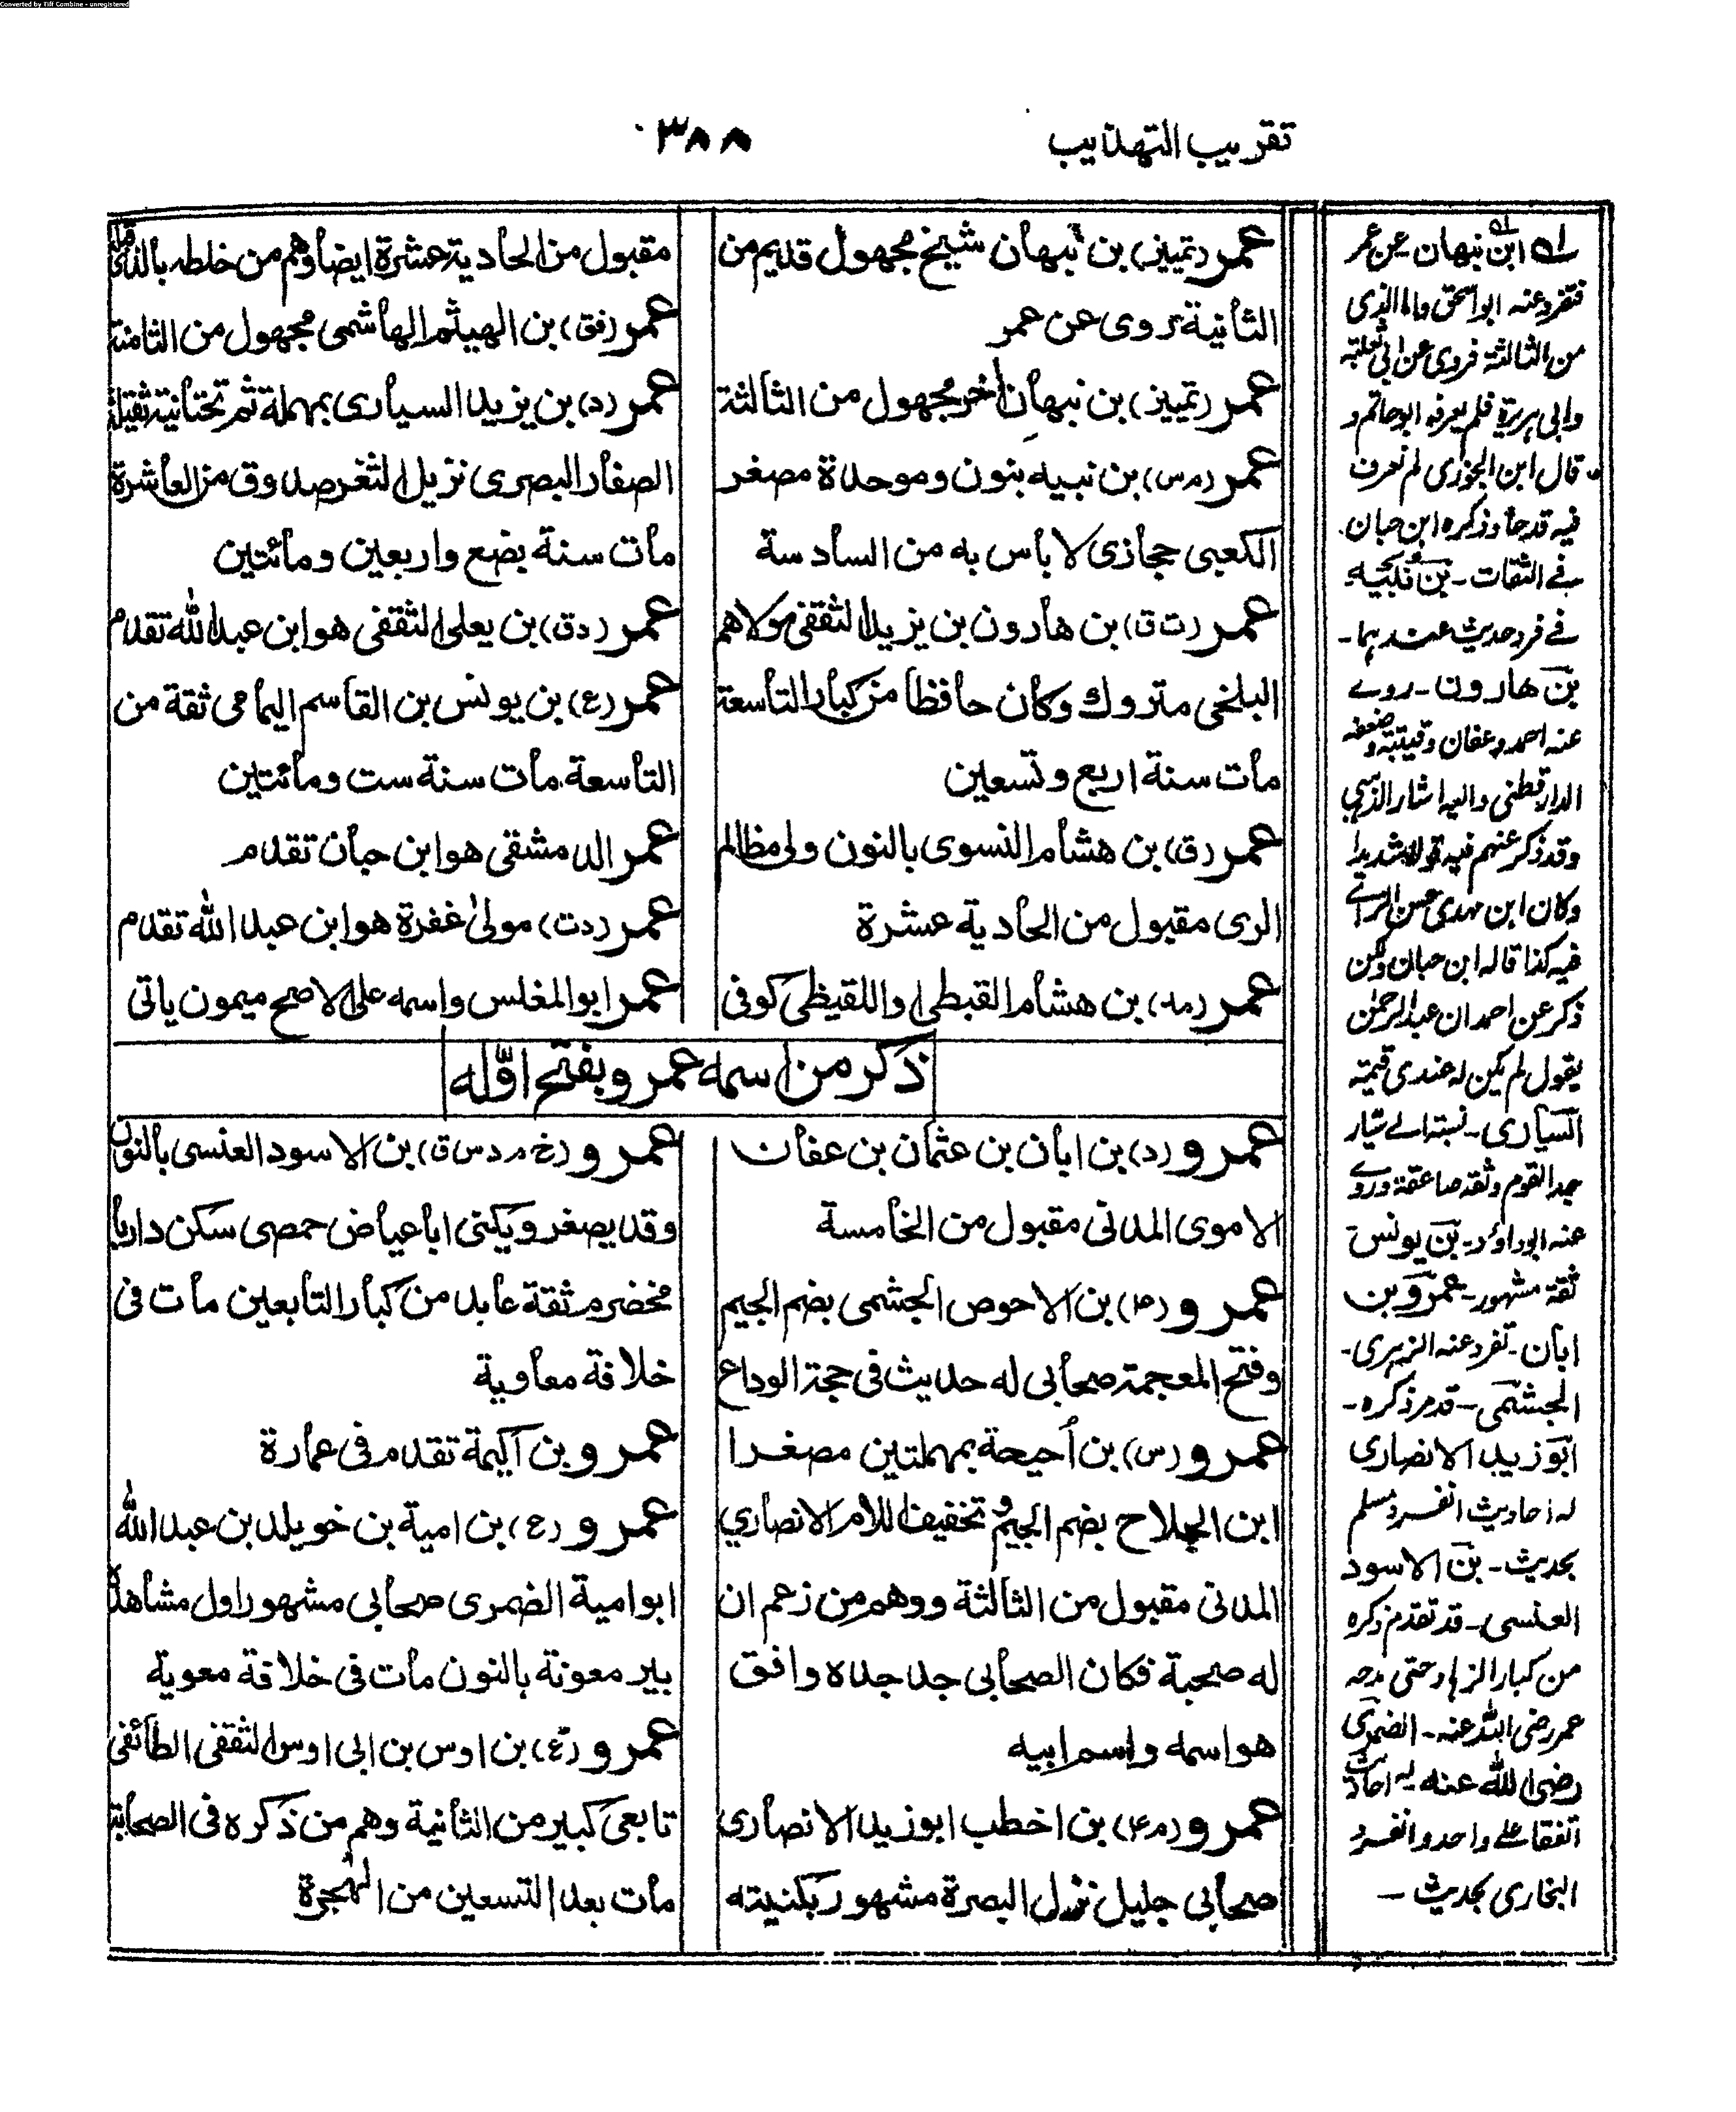 Converted by Tiff Combine - unregistered
تقريب التهذيب
٣٨٨
عمر (تمييز) بن نبهان شيخ مجهول قديم من
الثانية روى عن عمر
عمر (تمييز) بن نبهان اخر مجهول من الثالثة
عمر (م س) بن نبيه بنون وموحدة مصغر
الكعبى حجازى لا باس به من السادسة
عمر (ت ق) بن هارون بن يزيد الثقفى مولاهم
البلخى متروك وكان حافظا من كبار التاسعة
مات سنة اربع وتسعين
عمر (ق) بن هشام النسوى بالنون ولى مظالم
الرى مقبول من الحادية عشرة
عمر (مد) بن هشام القبطى او اللقيظى كوفى
مقبول من الحادية عشرة ايضا وهم من خلطه بالذى قبله
عمر (فق) بن الهيثم الهاشمى مجهول من الثامنة
عمر (د) بن يزيد السيارى بمهملة ثم تحتانية ثقيلة
الصفار البصرى نزيل الثغر صدوق من العاشرة
مات سنة بضع واربعين ومائتين
عمر (د ق) بن يعلى الثقفى هو ابن عبد الله تقدم
عمر (ع) بن يونس بن القاسم اليمامى ثقة من
التاسعة مات سنة ست ومائتين
عمر الدمشقى هو ابن حبان تقدم
عمر (د ت) مولى غفرة هو ابن عبد الله تقدم
عمر ابو المغلس واسمه على الاصح ميمون ياتى
ذكر من اسمه عمرو بفتح اوّله
عمرو (د) بن ابان بن عثمان بن عفان
الاموى المدنى مقبول من الخامسة
عمرو (ع) بن الاحوص الجشمى بضم الجيم
وفتح المعجمة صحابى له حديث فى حجة الوداع
عمرو (س) بن أحيحة بمهملتين مصغرا
ابن الجلاح بضم الجيم وتخفيف اللام الانصاري
المدنى مقبول من الثالثة ووهم من زعم ان
له صحبة فكان الصحابى جد جده وافق
هو اسمه واسم ابيه
عمرو (م ع) بن اخطب ابو زيد الانصارى
صحابى جليل نزل البصرة مشهور بكنيته
عمرو (خ م د س ق) بن الاسود العنسى بالنون
وقد يصغر ويكنى ابا عياض حمصى سكن داريا
مخضرم ثقة عابد من كبار التابعين مات فى
خلافة معاوية
عمرو بن أكيمة تقدم فى عمارة
عمرو (ع) بن امية بن خويلد بن عبد الله
ابو امية الضمرى صحابى مشهور اول مشاهده
بير معونة بالنون مات فى خلافة معوية
عمرو (ع) بن اوس بن ابى اوس الثقفى الطائفى
تابعى كبير من الثانية وهم من ذكره فى الصحابة
مات بعد التسعين من الهجرة
ابن نبهان عن عمر
فتفرد عنه ابو اسحق واما الذى
من الثالثة فروى عن ابى ثعلبة
وابى هريرة فلم يعرفه ابو حاتم و
قال ابن الجوزى لم نعرف
فيه قدحا وذكره ابن حبان
فے الثقات - بن نُبَيْه
فے فرد حديث عندهما -
بن هارون - روے
عنه احمد وعفان وقتيبة وضعفه
الدارقطنى واليه اشار الذهبى
وقد ذكر عنهم فيه قولا شديدا
وكان ابن مهدى حسن الراے
فيه كذا قاله ابن حبان ولكن
ذكر عن احمد ان عبد الرحمٰن
يقول لم يكن له عندى قيمة
السيارى - نسبة الے سيار
جد القوم وثقه صاعقة وروے
عنه ابو داؤد - بن يونس
ثقة مشهور - عمرو بن
ابان - تفرد عنه الزهرى -
الجشمى - قد مر ذكره -
ابو زيد الانصارى
له احاديث انفرد مسلم
بحديث - بن الاسود
العنسى - قد تقدم ذكره
من كبار الزهاد حتى مدحه
عمر رضى الله عنه - الضمرى
رضى الله عنه له احاديث
اتفقا على واحد وانفرد
البخارى بحديث -